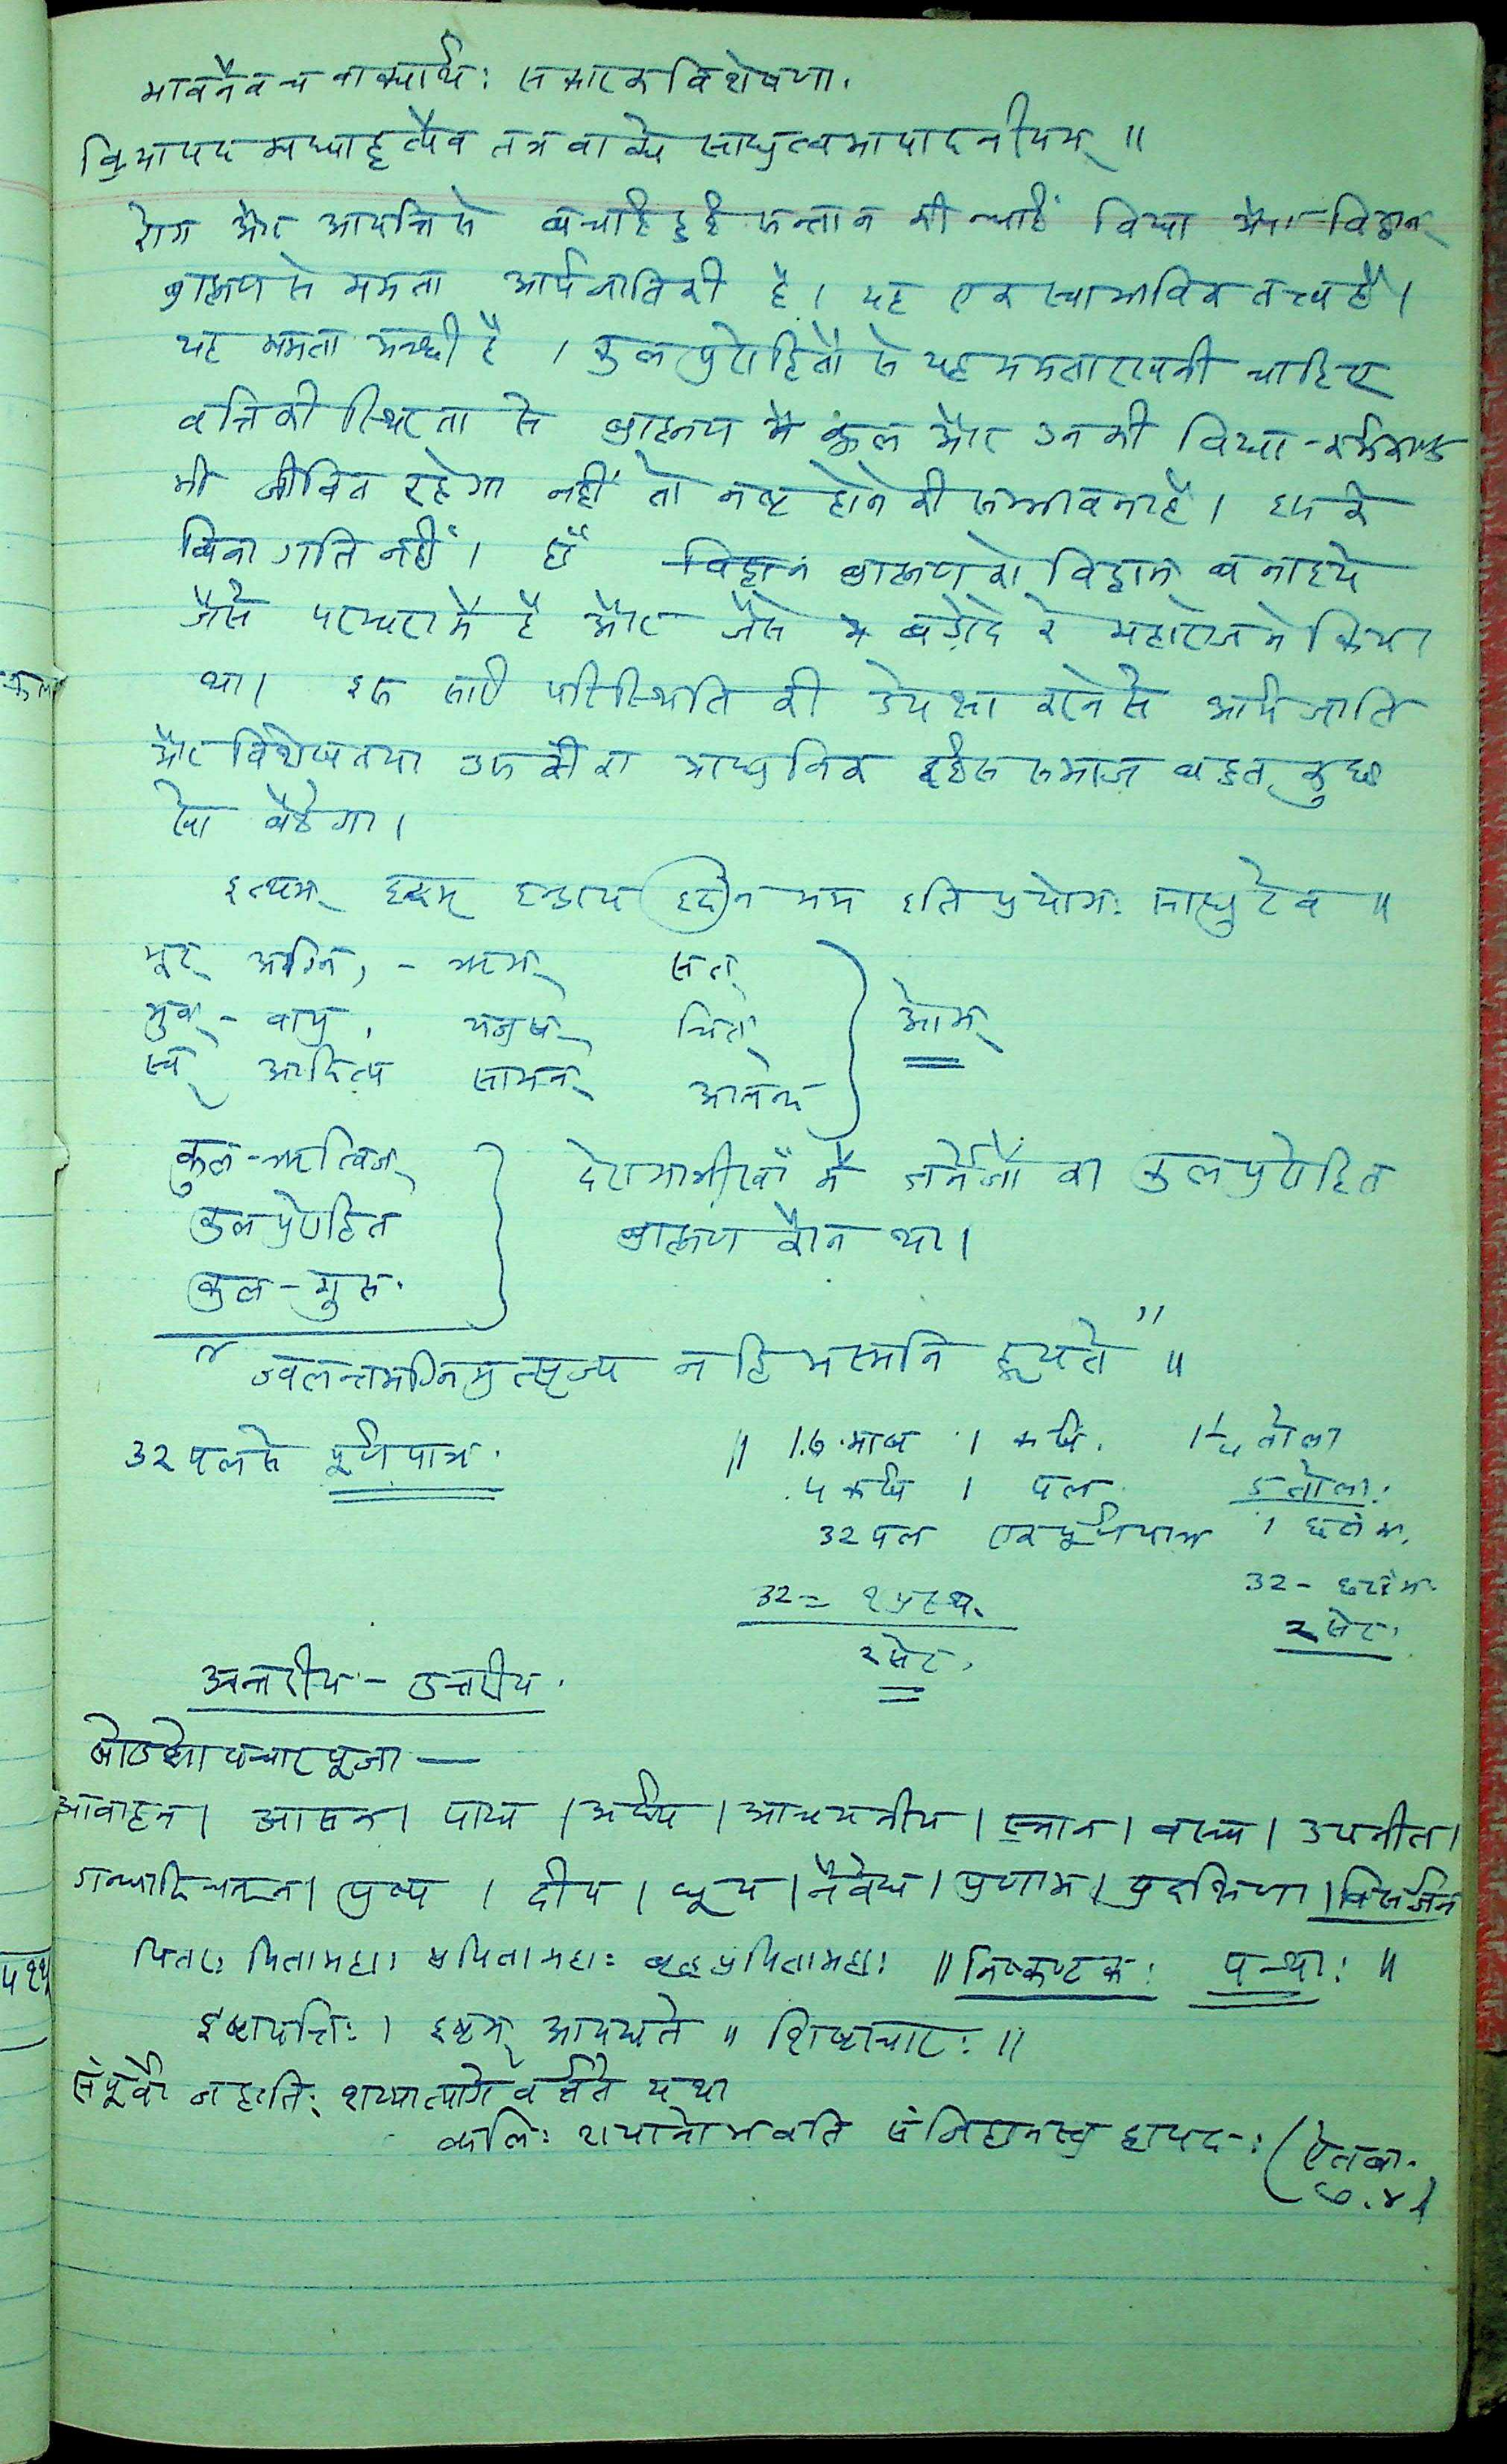 भावनैव च वाक्यार्थः स्वकारकविशेषणा.
क्रियापदमध्याहृत्यैव तत्र वाक्ये साधुत्वमापादनीयम् ॥
रोग और आपत्ति से बचाई हुई सन्तान की न्याईं विद्या और विद्वान्
ब्राह्मण से ममता आर्यजाति की है। यह एक स्वाभाविक तत्त्व है।
यह ममता अच्छी है । कुल पुरोहितों से यह ममता रखनी चाहिए
वृत्ति की स्थिरता से ब्राह्मण कुल और उनकी विद्या-कर्मकाण्ड
भी जीवित रहेगा नहीं तो नष्ट होने की सम्भावना है। इसके
बिना गति नहीं। हाँ ब्राह्मण को विद्वान् बनाइये
जैसे परम्परा में है और जैसे बड़ोदे के महाराज ने किया
था। इस सारी परिस्थिति की उपेक्षा करने से आर्य जाति
और विशेषतया उसका आधुनिक समाज बहुत कुछ
खो बैठेगा।
इत्थम् इदम् इन्द्राय इदं न मम इति प्रयोगः साधुरेव ॥
भूर् अग्नि, - ऋग् सत्
भुवर् - वायु, यजुष् चित्
स्वर् आदित्य सामन् आनन्द
ओम्
कुल-ऋत्विज्
कुलपुरोहित
कुल-गुरु.
में कुलपुरोहित
ब्राह्मण कौन था।
"ज्वलन्तमग्निमुत्सृज्य न हि भस्मनि हूयते" ॥
32 पल से पूर्णपात्र.
॥ 16 माष 1 कर्ष. 1¼ तोला
४ कर्ष 1 पल 5 तोला.
32 पल एक पूर्णपात्र 1 छटांक.
32 - छटांक.
32 = १ प्रस्थ.
२ सेर.
२ सेर.
अन्तरीय - उत्तरीय.
षोडशोपचारपूजा —
आवाहन। आसन। पाद्य। अर्घ्य। आचमनीय। स्नान। वस्त्र। उपवीत।
गन्धादिचन्दन। पुष्प । दीप। धूप। नैवेद्य। प्रणाम। प्रदक्षिणा। विसर्जन
पितरः पितामहाः प्रपितामहाः वृद्धप्रपितामहाः ॥ निष्कण्टकः पन्थाः ॥
इष्टापत्तिः। इष्टम् आपद्यते ॥ शिष्टाचारः ॥
संपूर्वो जहातिः शय्यात्यागे वर्तते यथा
कलिः शयानो भवति संजिहानस्तु द्वापरः (ऐतब्रा.
७.४)